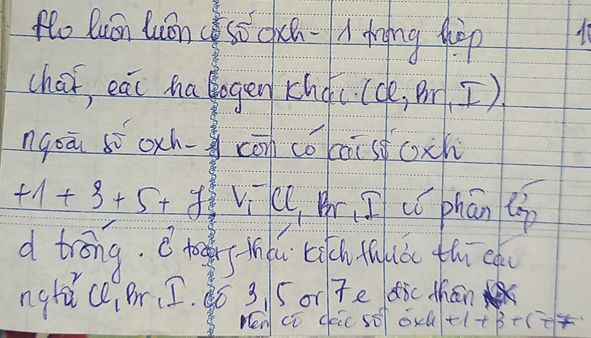 flo luôn luôn có số oxh - 1 trong hợp
chất, các halogen khác (Cl, Br, I)
ngoài số oxh - 1 còn có các số oxh
+1 + 3 + 5 + 7 Vì Cl, Br, I có phân lớp
d trống. Ở trạng thái kích thước thì các
ngtử Cl, Br, I. có 3, 5 or 7 e độc thân
nên có các số oxh +1 + 3 + 5 + 7